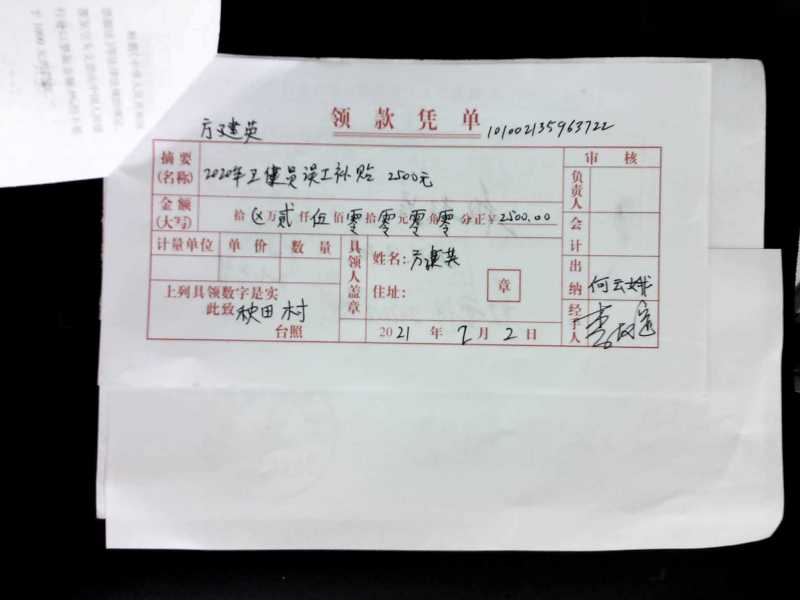 领款凭单
方建英 101002135963722
摘要(名称) 2020年卫健员误工补贴 2500元
审核
负责人
金额(大写) 拾 ⊗ 万 贰 仟 伍 佰 零 拾 零 元 零 角 零 分正 ¥ 2500.00
会计
计量单位 单价 数量
具领人盖章
姓名: 方建英
住址: 章
出纳 何云娥
上列具领数字是实
此致 秧田村
台照
2021 年 2 月 2 日
经手人